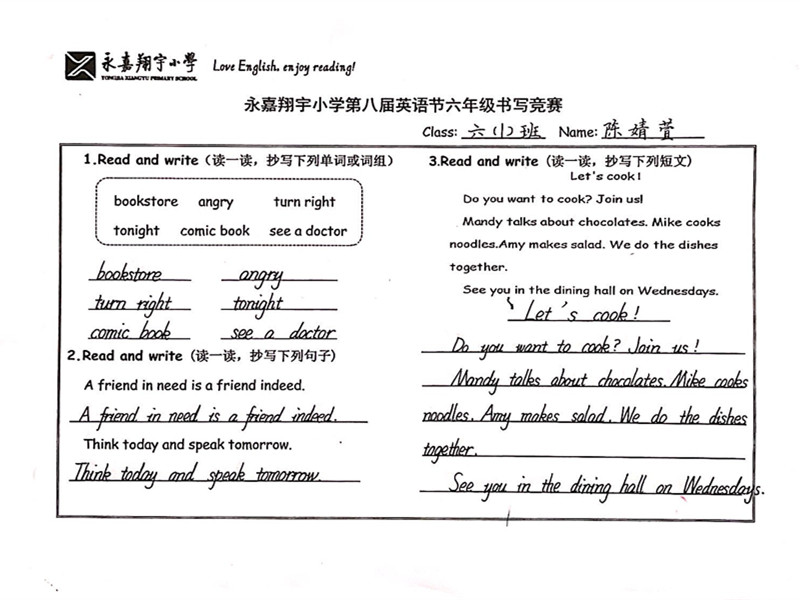 永嘉翔宇小學 Love English, enjoy reading!
YONGJIA XIANGYU PRIMARY SCHOOL
永嘉翔宇小学第八届英语节六年级书写竞赛
Class: 六(1)班 Name: 陈婧萱
1.Read and write（读一读，抄写下列单词或词组）
bookstore angry turn right
tonight comic book see a doctor
bookstore angry
turn right tonight
comic book see a doctor
2.Read and write（读一读，抄写下列句子）
A friend in need is a friend indeed.
A friend in need is a friend indeed.
Think today and speak tomorrow.
Think today and speak tomorrow.
3.Read and write（读一读，抄写下列短文）
Let's cook!
Do you want to cook? Join us!
Mandy talks about chocolates. Mike cooks
noodles.Amy makes salad. We do the dishes
together.
See you in the dining hall on Wednesdays.
Let's cook!
Do you want to cook? Join us!
Mandy talks about chocolates. Mike cooks
noodles. Amy makes salad. We do the dishes
together.
See you in the dining hall on Wednesdays.